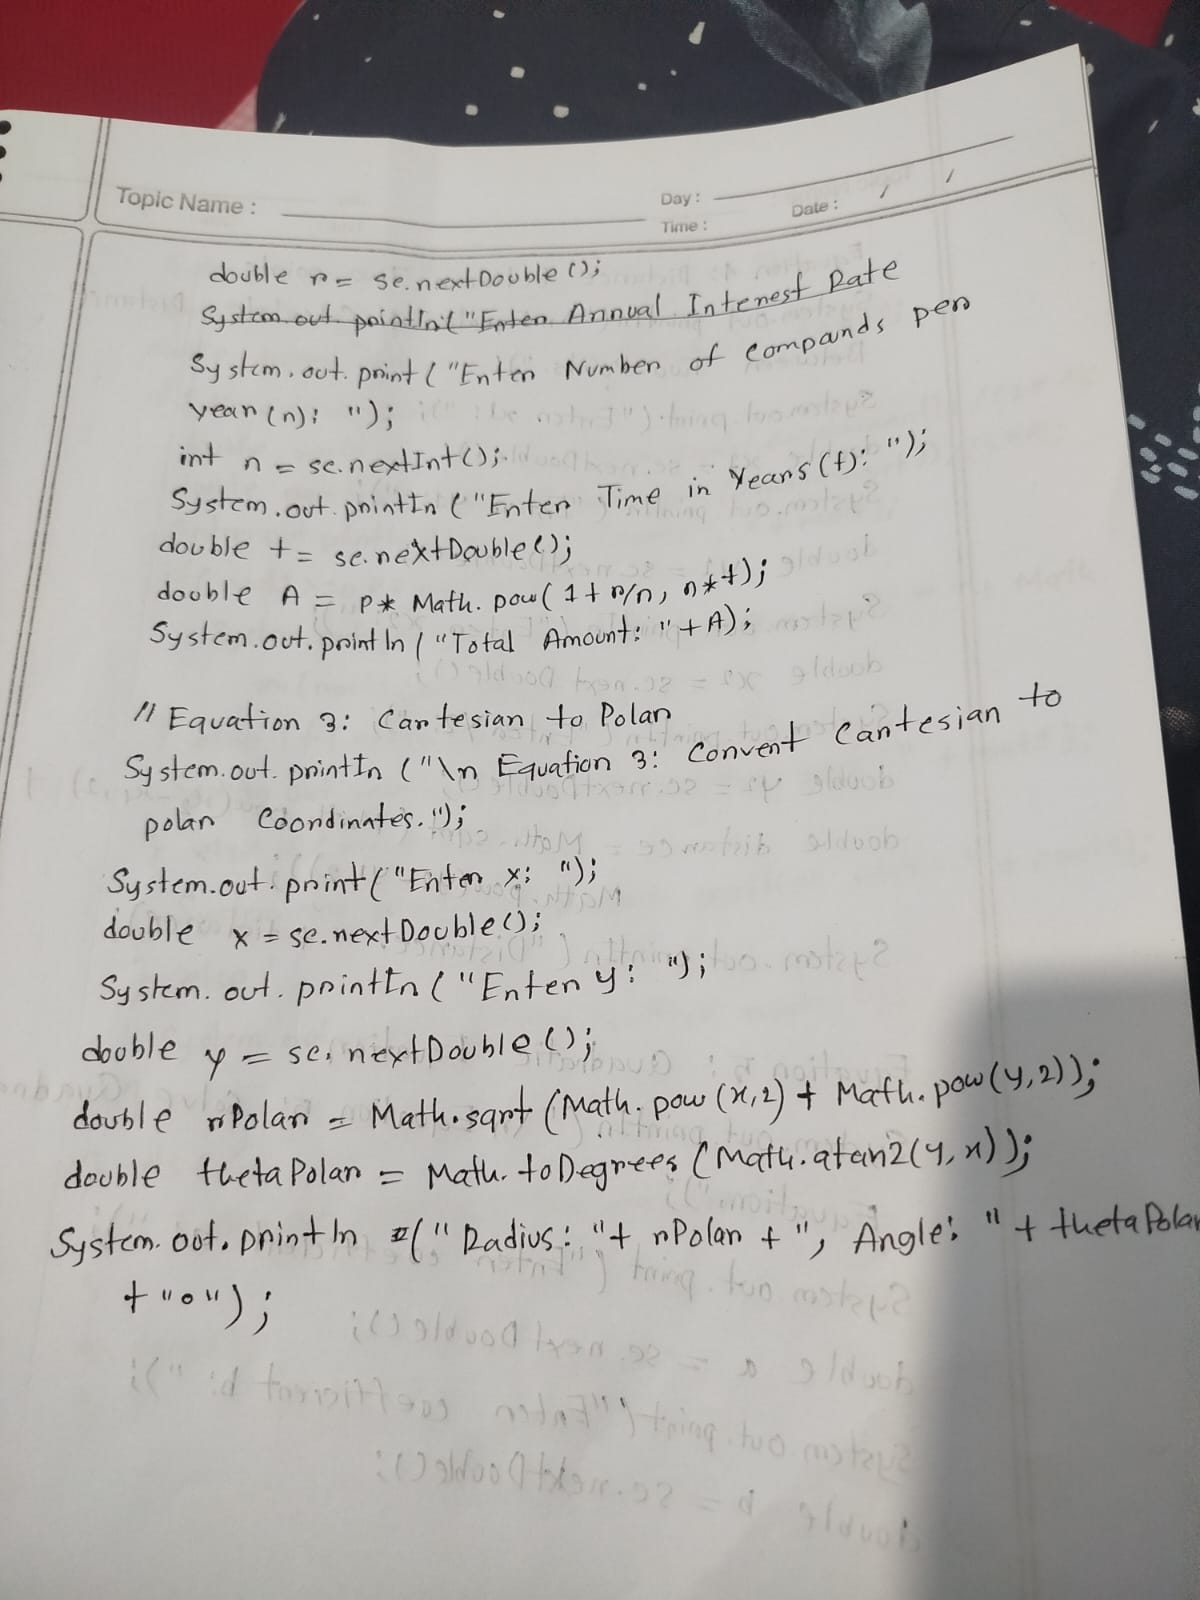 Topic Name :
Day :
Time :
Date : / /
double r = sc.nextDouble();
System.out.println("Enter Annual Interest Rate
System.out.print("Enter Number of Compounds per
year(n): ");
int n = sc.nextInt();
System.out.println("Enter Time in Years(t): ");
double t = sc.nextDouble();
double A = P* Math.pow(1+r/n, n*t);
System.out.println("Total Amount: "+A);
// Equation 3: Cartesian to Polar
System.out.println("\n Equation 3: Convert Cartesian to
polar Coordinates.");
System.out.print("Enter x: ");
double x = sc.nextDouble();
System.out.println("Enter y: ");
double y = sc.nextDouble();
double rPolar = Math.sqrt(Math.pow(x,2) + Math.pow(y,2));
double thetaPolar = Math.toDegrees(Math.atan2(y,x));
System.out.println("Radius: "+ rPolar + ", Angle: " + thetaPolar
+ "o");